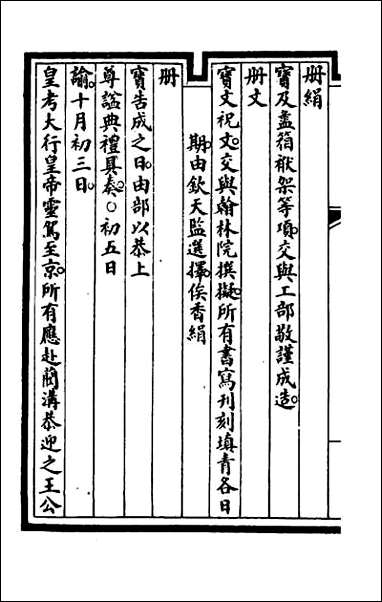 册絹
寶及盝箱袱架等項交與工部敬謹成造
册文
寶文祝文交與翰林院撰擬所有書寫刊刻填青各日
期由欽天監選擇俟香絹
册
寶告成之日由部以恭上
尊諡典禮具奏○初五日
諭十月初三日
皇考大行皇帝靈駕至京所有應赴蘭溝恭迎之王公